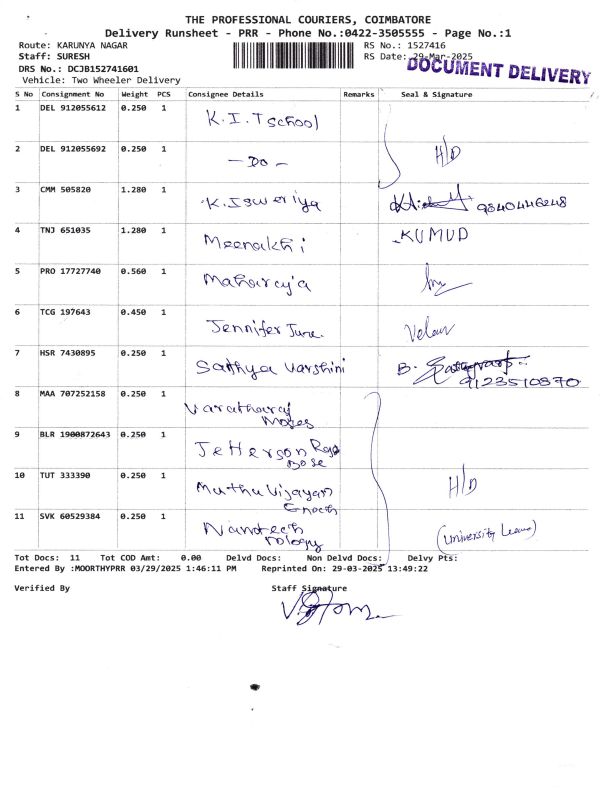 THE PROFESSIONAL COURIERS, COIMBATORE
Delivery Runsheet - PRR - Phone No.:0422-3505555 - Page No.:1
Route: KARUNYA NAGAR RS No.: 1527416
Staff: SURESH RS Date: 29-Mar-2025
DOCUMENT DELIVERY
DRS No.: DCJB152741601
Vehicle: Two Wheeler Delivery
S No Consignment No Weight PCS Consignee Details Remarks Seal & Signature
1 DEL 912055612 0.250 1 K.I.T school
2 DEL 912055692 0.250 1 - Do - H/D
3 CMM 505820 1.280 1 K.Isweriya 9840446248
4 TNJ 651035 1.280 1 Meenakhi KUMUD
5 PRO 17727740 0.560 1 Maharaja
6 TCG 197643 0.450 1 Jennifer June. Velan
7 HSR 7430895 0.250 1 Sathya Varshini B.
9123510870
8 MAA 707252158 0.250 1 Varatharaj
Moses
9 BLR 1900872643 0.250 1 Jefferson Raja
Dose
10 TUT 333390 0.250 1 Muthu Vijayan H/D
Enoch
11 SVK 60529384 0.250 1 Nanotech (University Leave)
nology
Tot Docs: 11 Tot COD Amt: 0.00 Delvd Docs: Non Delvd Docs: Delvy Pts:
Entered By :MOORTHYPRR 03/29/2025 1:46:11 PM Reprinted On: 29-03-2025 13:49:22
Verified By Staff Signature